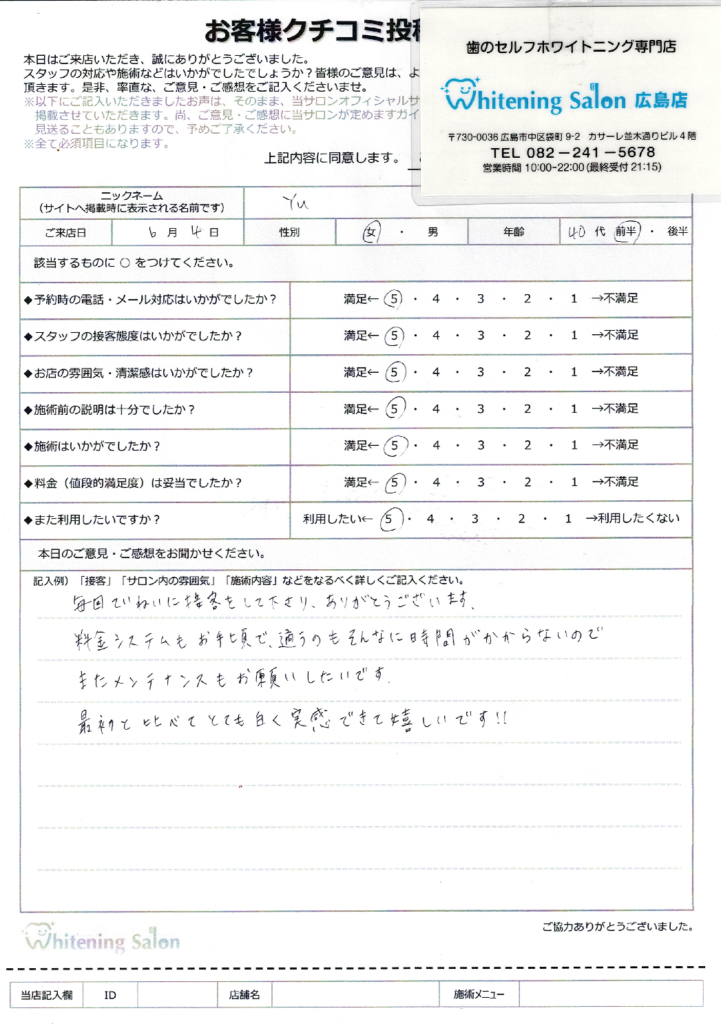 お客様クチコミ投稿
本日はご来店いただき、誠にありがとうございました。
スタッフの対応や施術などはいかがでしたでしょうか？皆様のご意見は、よ
頂きます。是非、率直な、ご意見・ご感想をご記入くださいませ。
※以下にご記入いただきましたお声は、そのまま、当サロンオフィシャルサ
掲載させていただきます。尚、ご意見・ご感想に当サロンが定めますガイ
見送ることもありますので、予めご了承ください。
※全て必須項目になります。
上記内容に同意します。
歯のセルフホワイトニング専門店
Whitening Salon 広島店
〒730-0036 広島市中区袋町 9-2 カサーレ並木通りビル 4 階
TEL 082-241-5678
営業時間 10:00-22:00 (最終受付 21:15)
ニックネーム
（サイトへ掲載時に表示される名前です） Yu
ご来店日 6 月 4 日 性別 女 ・ 男 年齢 40 代 前半 ・ 後半
該当するものに ○ をつけてください。
◆予約時の電話・メール対応はいかがでしたか？ 満足← 5 ・ 4 ・ 3 ・ 2 ・ 1 →不満足
◆スタッフの接客態度はいかがでしたか？ 満足← 5 ・ 4 ・ 3 ・ 2 ・ 1 →不満足
◆お店の雰囲気・清潔感はいかがでしたか？ 満足← 5 ・ 4 ・ 3 ・ 2 ・ 1 →不満足
◆施術前の説明は十分でしたか？ 満足← 5 ・ 4 ・ 3 ・ 2 ・ 1 →不満足
◆施術はいかがでしたか？ 満足← 5 ・ 4 ・ 3 ・ 2 ・ 1 →不満足
◆料金（値段的満足度）は妥当でしたか？ 満足← 5 ・ 4 ・ 3 ・ 2 ・ 1 →不満足
◆また利用したいですか？ 利用したい← 5 ・ 4 ・ 3 ・ 2 ・ 1 →利用したくない
本日のご意見・ご感想をお聞かせください。
記入例）「接客」「サロン内の雰囲気」「施術内容」などをなるべく詳しくご記入ください。
毎回ていねいに接客をして下さり、ありがとうございます。
料金システムもお手頃で、通うのもそんなに時間がかからないので
またメンテナンスもお願いしたいです。
最初と比べてとても白く実感できて嬉しいです!!
Whitening Salon
ご協力ありがとうございました。
当店記入欄 ID 店舗名 施術メニュー